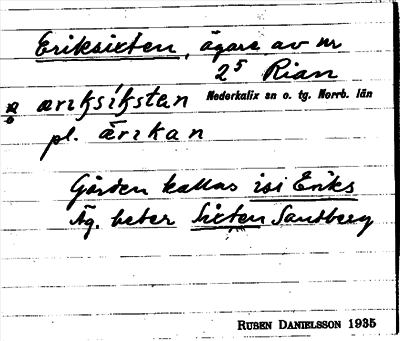 Eriksixten, ägare av nr
2⁵ Rian
ærɪksíkstən Nederkalix sn o. tg. Norrb. län
pl. ǣrɪkan
Gården kallas isi Eriks
Äg. heter Sixten Sandberg
RUBEN DANIELSSON 1935